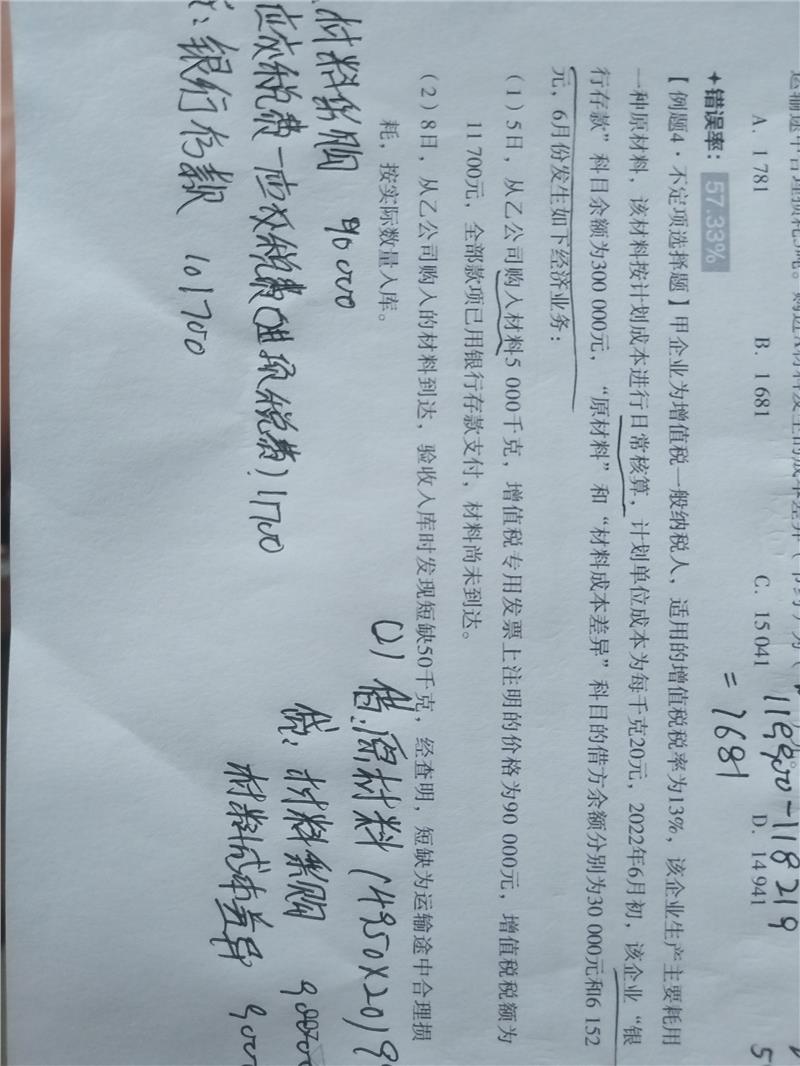 运输途中合理损耗5吨。购进A材料发生的成本差异（节约）为（
A. 1 781 B. 1 681 C. 15 041 D. 14 941
119900-118219
=1681
错误率：57.33%
【例题4·不定项选择题】甲企业为增值税一般纳税人，适用的增值税税率为13%，该企业生产主要耗用
一种原材料，该材料按计划成本进行日常核算，计划单位成本为每千克20元，2022年6月初，该企业“银
行存款”科目余额为300 000元，“原材料”和“材料成本差异”科目的借方余额分别为30 000元和6 152
元，6月份发生如下经济业务：
（1）5日，从乙公司购入材料5 000千克，增值税专用发票上注明的价格为90 000元，增值税税额为
11 700元，全部款项已用银行存款支付，材料尚未到达。
（2）8日，从乙公司购入的材料到达，验收入库时发现短缺50千克，经查明，短缺为运输途中合理损
耗，按实际数量入库。
材料采购 90000
应交税费一应交税费(进项税费) 11700
银行存款 101700
(2) 借:原材料 (4950×20)9
贷:材料采购 90000
材料成本差异 9000